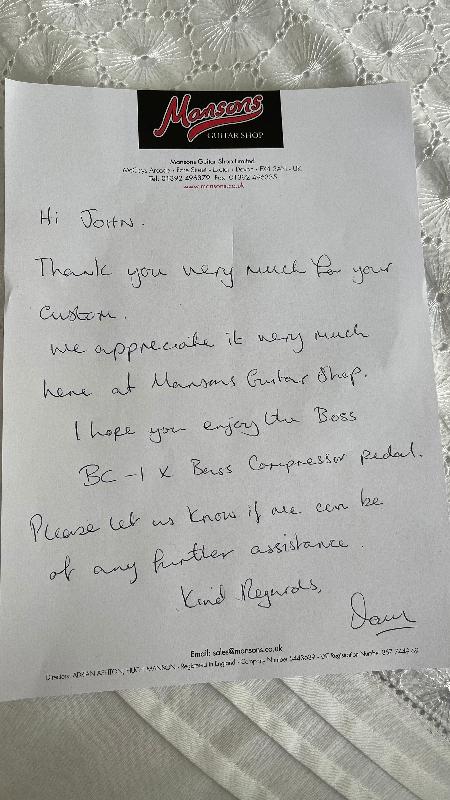 Mansons
GUITAR SHOP
Mansons Guitar Shop Limited
Street - Exeter - Devon - UK
Tel: 01392 496379 Fax: 01392
www.mansons.co.uk
Hi JOHN.
Thank you very much for your
custom.
We appreciate it very much
here at Mansons Guitar Shop.
I hope you enjoy the Boss
BC-1X Bass Compressor pedal.
Please let us know if we can be
of any further assistance.
Kind Regards,
Email: sales@mansons.co.uk
Directors: ADRIAN ASHTON, HUGH MANSON - Registered in England - Company Number - Registration Number